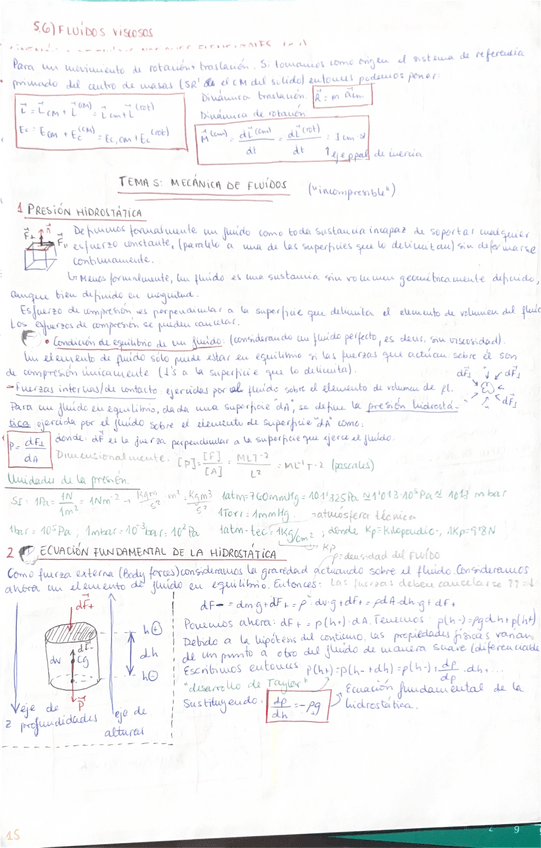 5.6) FLUÍDOS VISCOSOS
Para un movimiento de rotación + traslación. Si tomamos como origen el sistema de referencia
primado del centro de masas (SR' es el CM del sólido) entonces podemos poner:
Dinámica traslación
Dinámica de rotación
eje ppal de inercia
TEMA 5: MECÁNICA DE FLUÍDOS ("incompresible")
1 PRESIÓN HIDROSTÁTICA
Definimos formalmente un fluído como toda sustancia incapaz de soportar cualquier
esfuerzo constante, (paralelo a una de las superficies que lo delimitan) sin deformarse
continuamente.
↳ Menos formalmente, un fluído es una sustancia sin volumen geométricamente definido,
aunque bien definido en magnitud.
Esfuerzo de compresión es perpendicular a la superficie que delimita el elemento de volumen del fluído
Los esfuerzos de compresión se pueden cancelar.
• Condición de equilibrio de un fluído. (considerando un fluído perfecto, es decir, sin viscosidad).
Un elemento de fluído sólo puede estar en equilibrio si las fuerzas que actúan sobre él son
de compresión únicamente (⊥s a la superficie que lo delimita).
- Fuerzas internas/de contacto: ejercidas por el fluído sobre el elemento de volumen de fl.
Para un fluído en equilibrio, dada una superficie "dA", se define la presión hidrostá-
tica ejercida por el fluído sobre el elemento de superficie "dA" como:
P = dF⊥/dA donde dF es la fuerza perpendicular a la superficie que ejerce el fluído.
Dimensionalmente: [P] = [F]/[A] = MLT⁻²/L² = ML⁻¹T⁻² (pascales)
Unidades de la presión
SI: 1Pa = 1N/1m² = 1Nm⁻² 1atm = 760mmHg = 101'325Pa ≃ 1'013·10⁵Pa ≃ 1013 mbar
1Torr = 1mmHg atmósfera técnica
1bar = 10⁵Pa, 1mbar = 10⁻³bar = 10²Pa 1atm-tec = 1Kg/cm², donde Kp = Kilopondio, 1Kp = 9'8N
Kp
ρ densidad del FLUÍDO
2 ECUACIÓN FUNDAMENTAL DE LA HIDROSTÁTICA
Como fuerza externa (Body forces) consideramos la gravedad actuando sobre el fluído. Consideramos
ahora un elemento de fluído en equilibrio. Entonces: Las fuerzas deben cancelarse
dF- = dm·g + dF+ = ρ·dv·g + dF+ = ρdA·dh·g + dF+
Ponemos ahora: dF+ = p(h+)·dA. Tenemos p(h-) = ρg dh + p(h+)
Debido a la hipótesis del continuo, las propiedades físicas varían
de un punto a otro del fluído de manera suave (diferenciable
Escribimos entonces
"desarrollo de Taylor"
Sustituyendo: dp/dh = -ρg Ecuación fundamental de la
hidrostática.
dF+
h⊕
dF-
dv
Cg
dh
h⊖
P
eje de
z profundidades
eje de
alturas
15